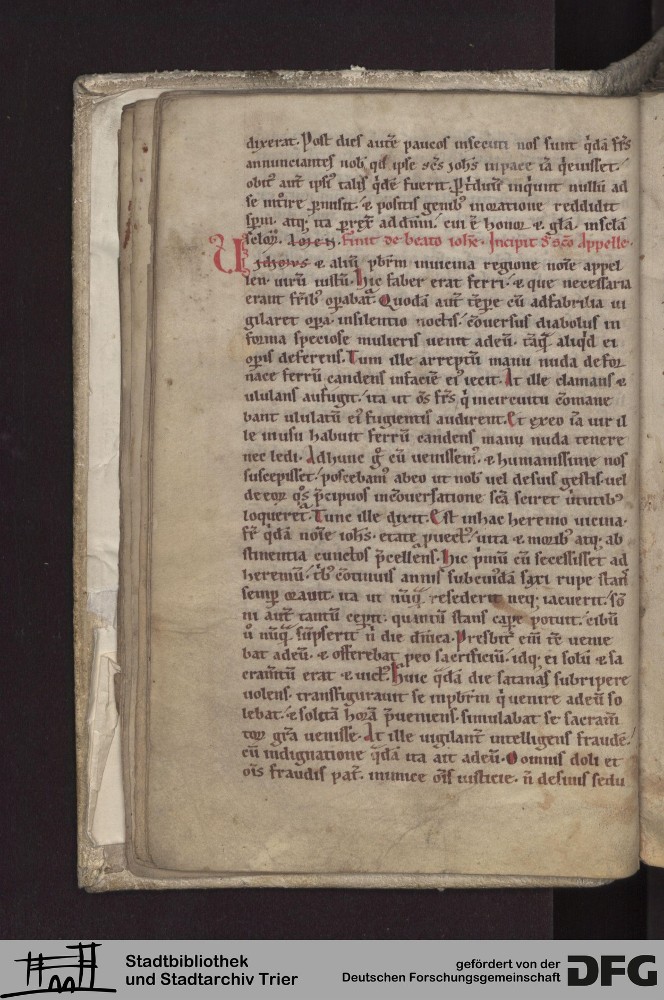 dixerat. Post dies autē paucos insecuti nos sunt qdā frs
annunciantes nob qd ipse scs iohs inpace iā qeuisset.
obit aut ipsi talis qdē fuerit. inquiunt nullū ad
se permisit. & positis genib inoratione reddidit
spm. atq; ita ad dnm. cui ē honor & gla. inscla
sclor. Amen. Finit de beato iohe. Incipit d sco Appelle.
Vidimus & aliū pbrm inuicina regione noīe appel
len. uirū iustū. Hic faber erat ferri. & que necessaria
erant frib opabat. Quodā aut tēpe cū adfabrilia ui
gilaret opa. insilentio noctis. cōuersus diabolus in
forma speciose mulieris uenit adeū. tāq aliqd ei
opis deferens. Tum ille arreptū manu nuda de for
nace ferrū candens infaciē ei iecit. At ille clamans &
ululans aufugit. ita ut os frs q incircuitu cōmane
bant ululatū ei fugientis audirent. Et exeo iā uir il
le inusu habuit ferrū candens manu nuda tenere
nec ledi. Adhunc g cū uenissem. & humanissime nos
suscepisset. poscebam abeo ut nob uel desuis gestis. uel
de eor qos pcipuos incōuersatione scā sciret uirtutib
loqueret. Tunc ille dixit. Est inhac heremo uicina.
fr qdā noīe iohs. etate uita & morib atq; ab
stinentia cunctos pcellens. Hic pmū cū secessisset ad
heremū. cōtinuis annis subcuidā saxi rupe stans
semp orauit. ita ut nūq resederit neq; iacuerit. sō
ni aut tantū cepit. quantū stans cape potuit. cibū
u nūq sūpserit n die dnica. Presbit eni tē uenie
bat adeū. & offerebat peo sacrificiū. idq; ei solū & sa
cramtū erat & uict. Huic qdā die satanas subripere
uolens. transfigurauit se inpbrm q uenire adeū so
lebat. & solitā horā pueniens. simulabat se sacram
tor gra uenisse. At ille uigilant intelligens fraudē.
cū indignatione qdā ita ait adeū. O omnis doli et
ois fraudis pat. inimice ois iusticie. n desinis sedu
Stadtbibliothek
und Stadtarchiv Trier
gefördert von der
Deutschen Forschungsgemeinschaft
DFG